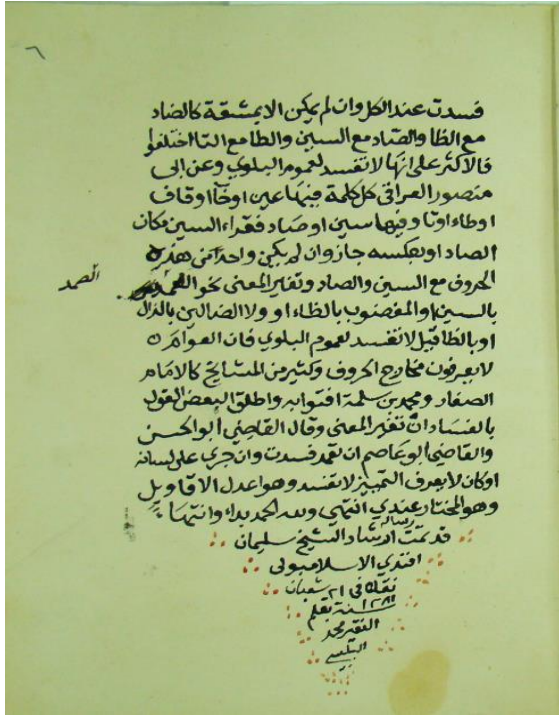 ٦
فسدت عند الكل وان لم يكن الا بمشقة كالضاد
مع الظا والصاد مع السين والطا مع التا اختلفوا
فالاكثر على انها لا تفسد لعموم البلوي وعن ابى
منصور العراقى كل كلمة فيها عين اوخآ اوقاف
اوطاء اوتا وفيها سين اوصاد فقراء السين مكان
الصاد اوبعكسه جاز وان لم يكن واحدا من هذه
الحروف مع السين والصاد وتغير المعنى نحو
الصمد
بالسين او المغضوب بالظاء او ولا الضالين بالذال
اوبالظا قيل لا تفسد لعموم البلوي فان العوام
لا يعرفون مخارج الحروف وكثير من المشايخ كالامام
الصفار ومحمد بن سلمة افتوا به واطلق البعض القول
بالفساد ان تغير المعنى وقال القاضي ابو الحسن
والقاضي ابو عاصم ان تعمد فسدت وان جري على لسانه
اوكان لا يعرف التمييز لا تفسد وهو اعدل الاقاويل
وهو المختار عندي انتهى ولله الحمد بداء وانتهاء
قد تمت رسالة الشيخ سليمان
افندي الاسلامبولى
نقلت فى ٢١ شعبان
سنة ١٢٨١ بقلم
الفقير محمد